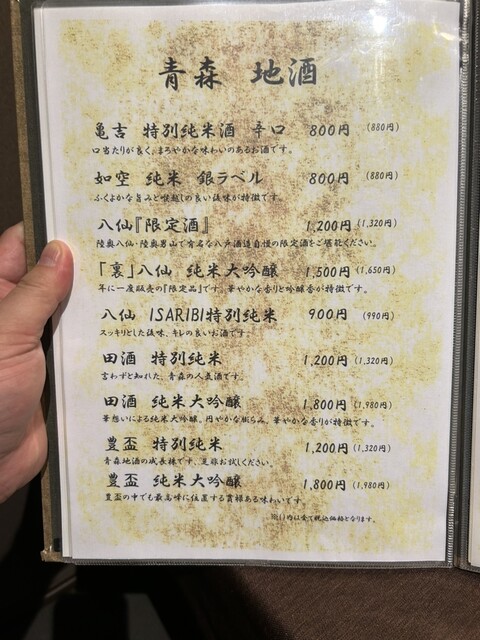 青森 地酒
亀吉 特別純米酒 辛口 800円 (880円)
口当たりが良く、まろやかな味わいのあるお酒です。
如空 純米 銀ラベル 800円 (880円)
ふくよかな旨みと喉越しの良い後味が特徴です。
八仙『限定酒』 1,200円 (1,320円)
陸奥八仙・陸奥男山で有名な八戸酒造自慢の限定酒をご堪能ください。
「裏」八仙 純米大吟醸 1,500円 (1,650円)
年に一度販売の『限定品』です。華やかな香りと吟醸香が特徴です。
八仙 ISARIBI特別純米 900円 (990円)
スッキリとした後味、キレの良いお酒です。
田酒 特別純米 1,200円 (1,320円)
言わずと知れた、青森の人気酒です。
田酒 純米大吟醸 1,800円 (1,980円)
華想いによる純米大吟醸。円やかな膨らみ、華やかな香りが特徴です。
豊盃 特別純米 1,200円 (1,320円)
青森地酒の成長株です。是非お試しください。
豊盃 純米大吟醸 1,800円 (1,980円)
豊盃の中でも最高峰に位置する貴様ある味わいです。
※( )内は全て税込価格となります。